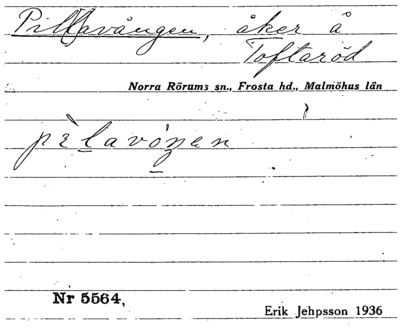 Pillavången, åker å
Toftaröd
Norra Rörums sn., Frosta hd., Malmöhus län
Nr 5564,
Erik Jehpsson 1936